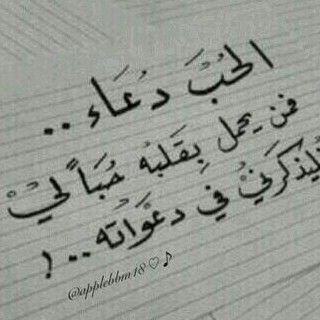 الحُبْ دُعَاء ..
فمن يحمل بِقَلبهُ حُبَاً ليْ
فليَذكرَنيْ فيْ دعوَاتَه .. !
@applebbm18♡♪